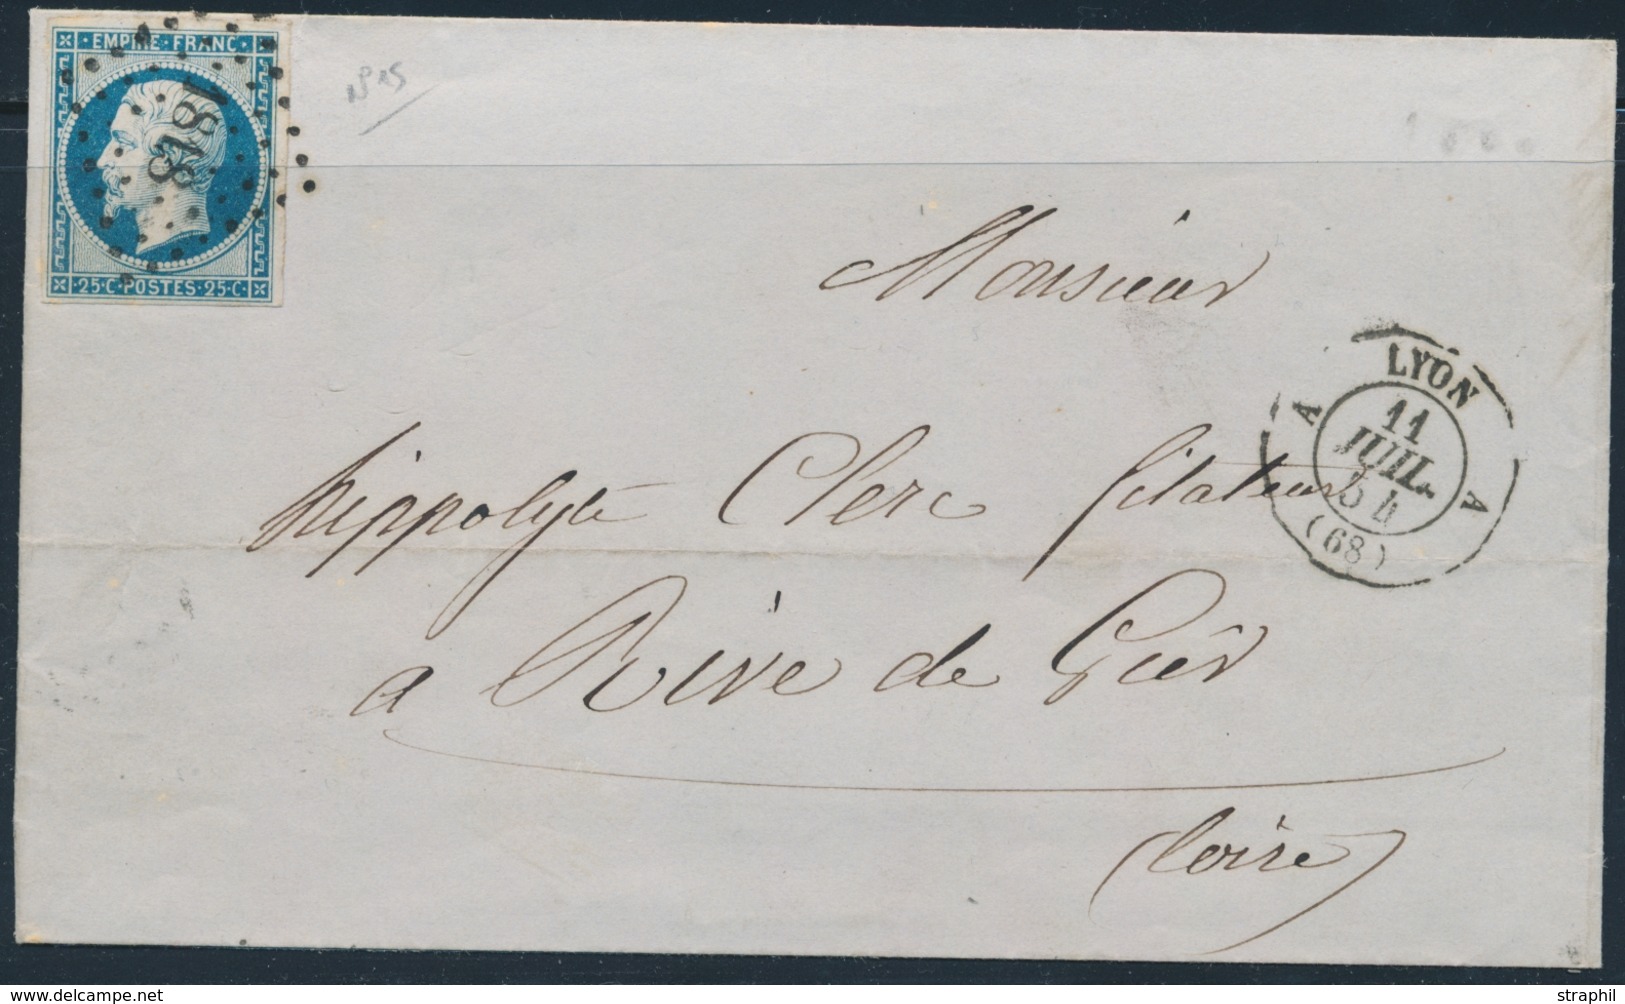 EMPIRE FRANC
1818
25·C·POSTES·25·C·
N° 15
Monsieur
hippolyte Clerc filateur
a Rive de Gier
(Loire)
LYON
A A
11
JUIL.
54
(68)
straphil
delcampe.net